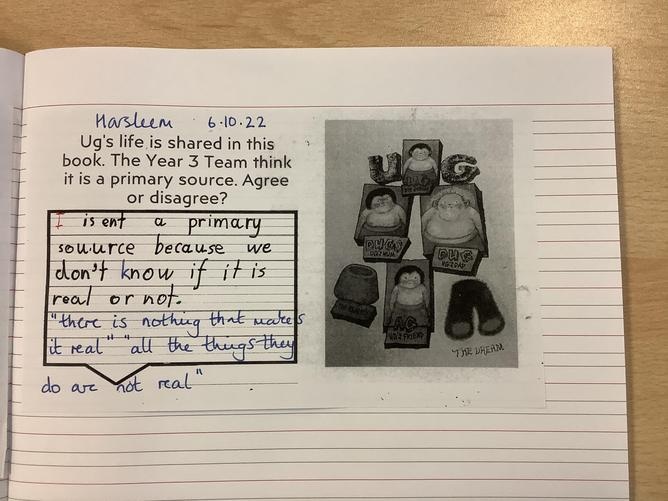 Harsleem 6.10.22
Ug's life is shared in this
book. The Year 3 Team think
it is a primary source. Agree
or disagree?
I is ent a primary
souurce because we
don't know if it is
real or not.
"there is nothing that makes
it real" "all the things they
do are not real"
UG
DUGS
UG'S MUM
DUG
UG'S DAD
AG
UG'S FRIEND
THE DREAM